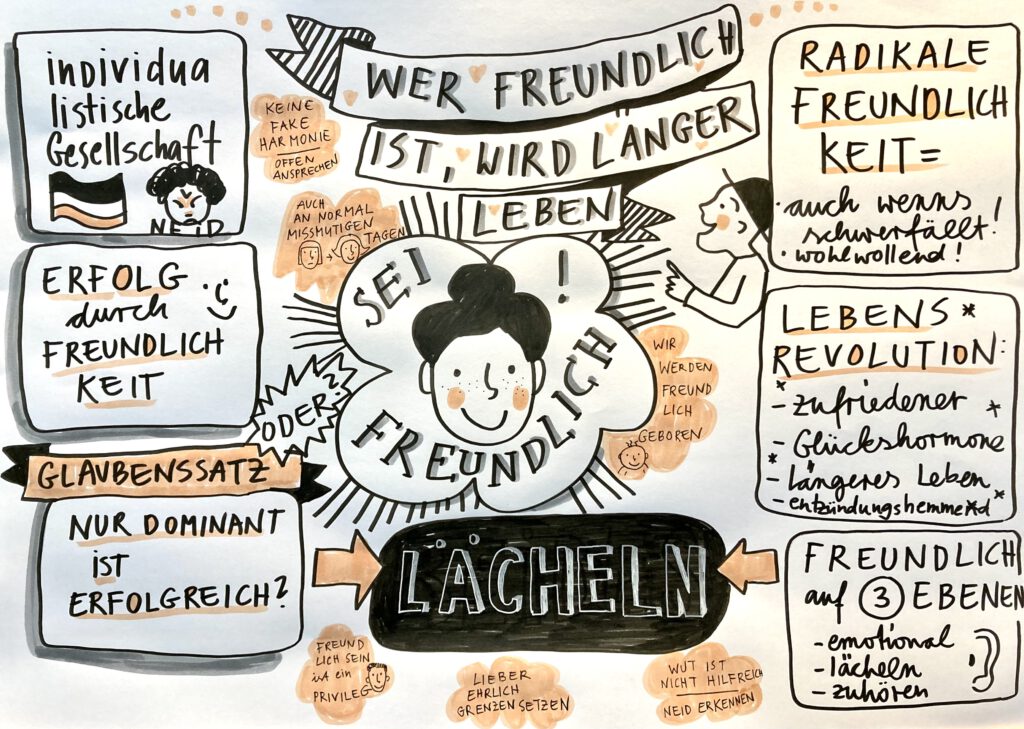 individua
listische
Gesellschaft
NEID
ERFOLG
durch
FREUNDLICH
KEIT
ODER?
GLAUBENSSATZ
NUR DOMINANT
iST
ERFOLGREICH?
WER FREUNDLICH
IST, WIRD LÄNGER
LEBEN
KEINE
FAKE
HARMONIE
OFFEN
ANSPRECHEN
AUCH
AN NORMAL
MISSMUTIGEN
TAGEN
SEI
FREUNDLICH!
WIR
WERDEN
FREUND
LICH
GEBOREN
LÄCHELN
FREUND
LICH SEIN
ist ein
PRIVILEG
LIEBER
EHRLICH
GRENZEN SETZEN
WUT IST
NICHT HILFREICH
NEID ERKENNEN
RADIKALE
FREUNDLICH
KEIT=
· auch wenns
schwerfällt!
· wohlwollend!
LEBENS
REVOLUTION:
- zufriedener
- Glückshormone
- Längeres Leben
- entzündungshemmend
FREUNDLICH
auf 3 EBENEN
- emotional
- lächeln
- zuhören